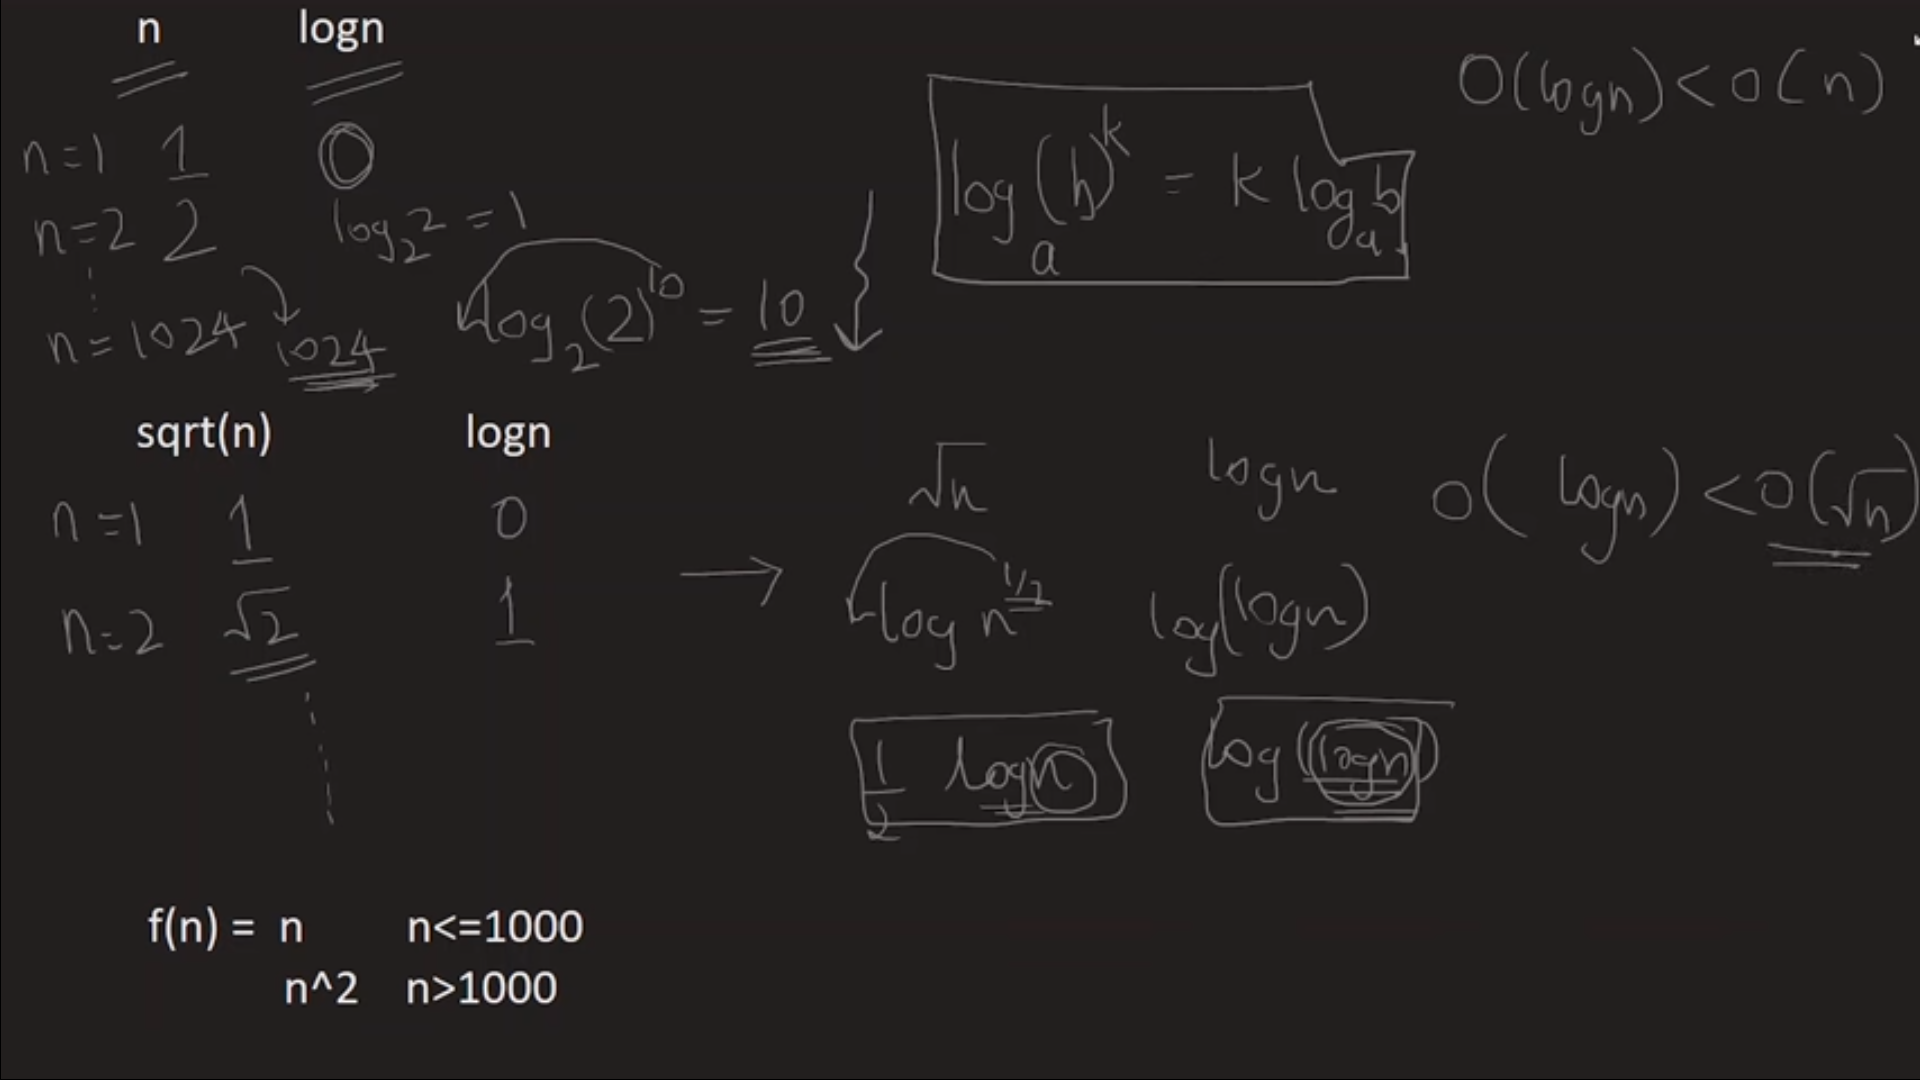 n logn
n=1 1 0
n=2 2 log₂2 = 1
n=1024 1024 log₂(2)^10 = 10
logₐ(b)^k = k logₐb
O(logn) < O(n)
sqrt(n) logn
n=1 1 0
n=2 √2 1
√n logn
log n^1/2 log(logn)
1/2 logn log(logn)
O(logn) < O(√n)
f(n) = n n<=1000
n^2 n>1000